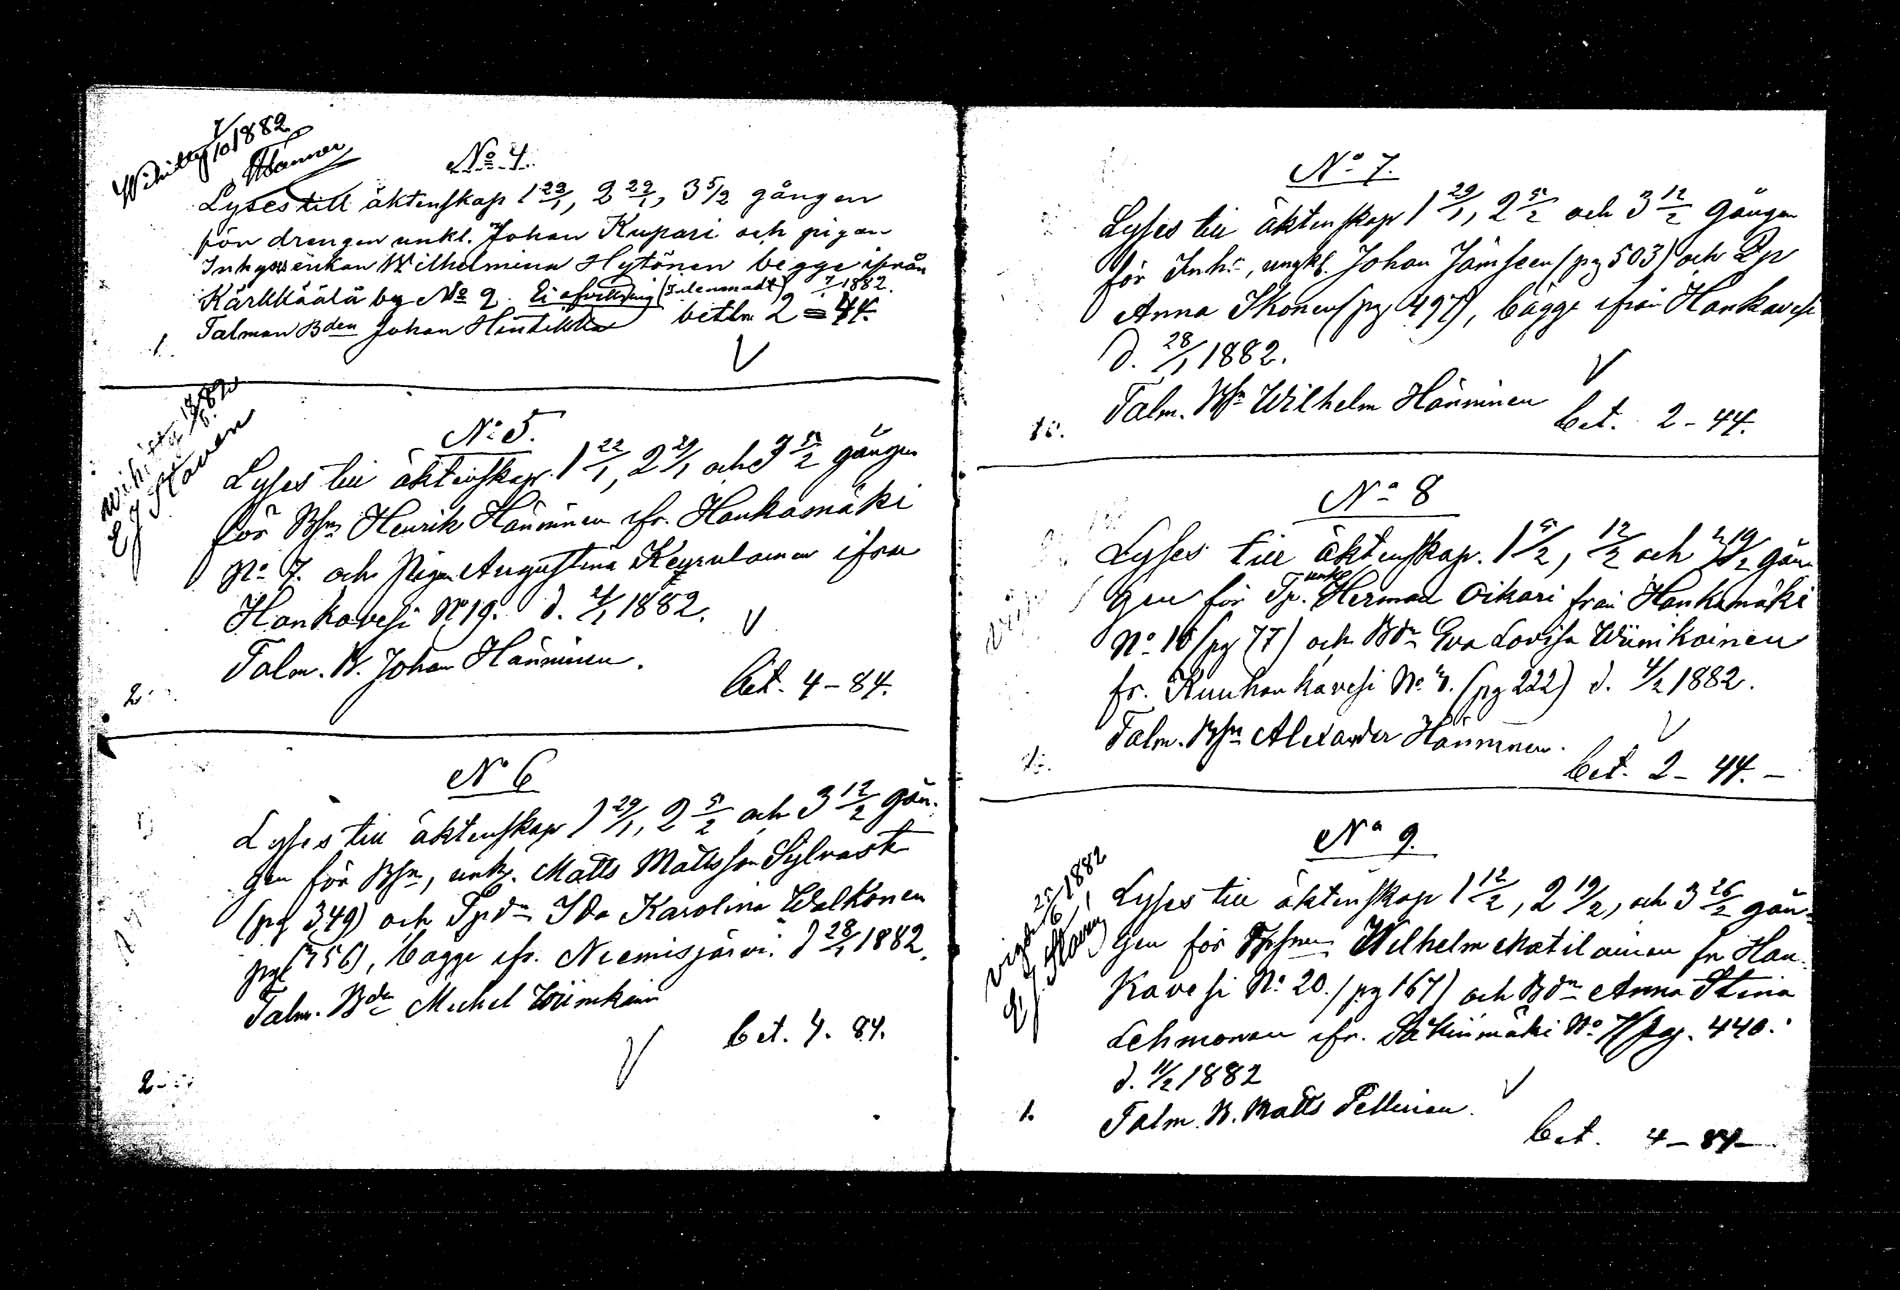 7/10 1882
No 4.
Lyses till äktenskap 1 22/1, 2 29/1, 3 5/2 gången
för drengen unkl. Johan Kupari och pigan
Inhyses enkan Wilhelmina Hytönen begge ifrån
Kärkkäälä by No 2. 7/1 1882.
Talman Bden Johan Hintikka betln 2 = 44.
1.
1882
No 5.
Lyses till äktenskap. 1 22/1, 2 29/1 och 3 5/2 gången
för Bsn Henrik Hänninen ifr. Hankamäki
No 7. och Pigan Augustina ifrån
Hankavesi No 19. d. 21/1 1882.
Talm. B. Johan Hänninen.
bet. 4 - 84.
2
No 6
Lyses till äktenskap 1 29/1, 2 5/2 och 3 12/2 gån-
gen för Bsn, unk. Matts Mattsson Sylvast
(pg 349) och Tpdr Ida Karolina Walkonen
(pg 756), bägge ifr. Niemisjärvi d 28/1 1882.
Talm. Bden Michel
bet. 4. 84.
2
No 7.
Lyses till äktenskap 1 29/1, 2 5/2 och 3 12/2 gången
för Inhs, ungk. Johan Jämseen (pg 503) och
Anna Ikonen (pg 497), bägge ifrån Hankavesi
d. 28/1 1882.
Talm. Bsn Wilhelm Hänninen
bet. 2 - 44.
No 8
Lyses till äktenskap. 1 5/2, 12/2 och 19/2 gån-
gen för Tp. unk. Herman Oikari från Hankamäki
No 16 (pg 77) och Bdr Eva Lovisa Wiinikainen
fr. Kuuhankavesi No 4. (pg 222) d. 4/2 1882.
Talm. Bsn Alexander Hänninen.
bet. 2 - 44. -
25/6 1882
No 9.
Lyses till äktenskap 1 12/2, 2 19/2, och 3 26/2 gån-
gen för Wilhelm Matilainen fr Han-
kavesi No 20. (pg 167) och Bdr Anna Stina
Lehmonen ifr. No 7 (pg. 440.
d. 11/2 1882
1.
Talm. B. Matts Pellinen.
bet. 4 - 84 -